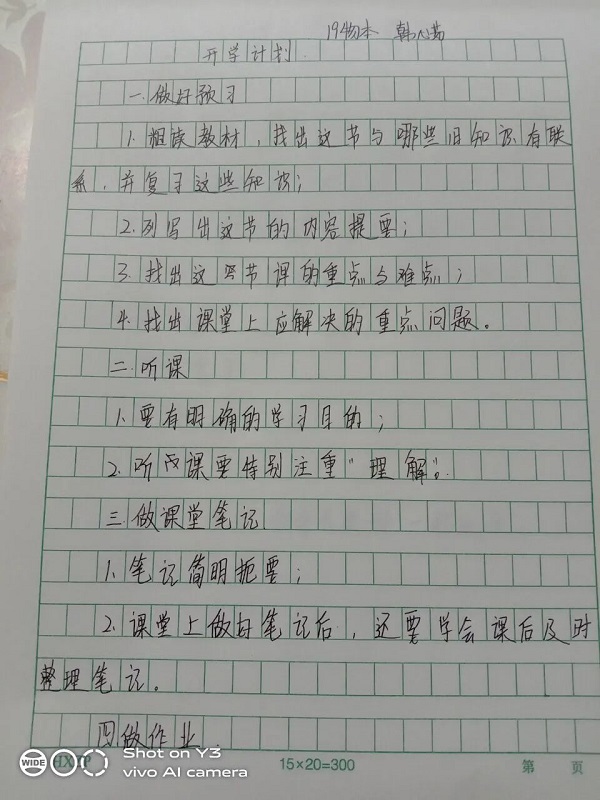 19物本 韩心茹
开学计划
一.做好预习
1.粗读教材，找出这节与哪些旧知识有联
系，并复习这些知识；
2.列写出这节的内容提要；
3.找出这节课的重点与难点；
4.找出课堂上应解决的重点问题。
二.听课
1.要有明确的学习目的；
2.听课要特别注重"理解"。
三.做课堂笔记
1.笔记简明扼要；
2.课堂上做好笔记后，还要学会课后及时
整理笔记。
四做作业
WIDE
Shot on Y3
vivo AI camera
15×20=300
第 页